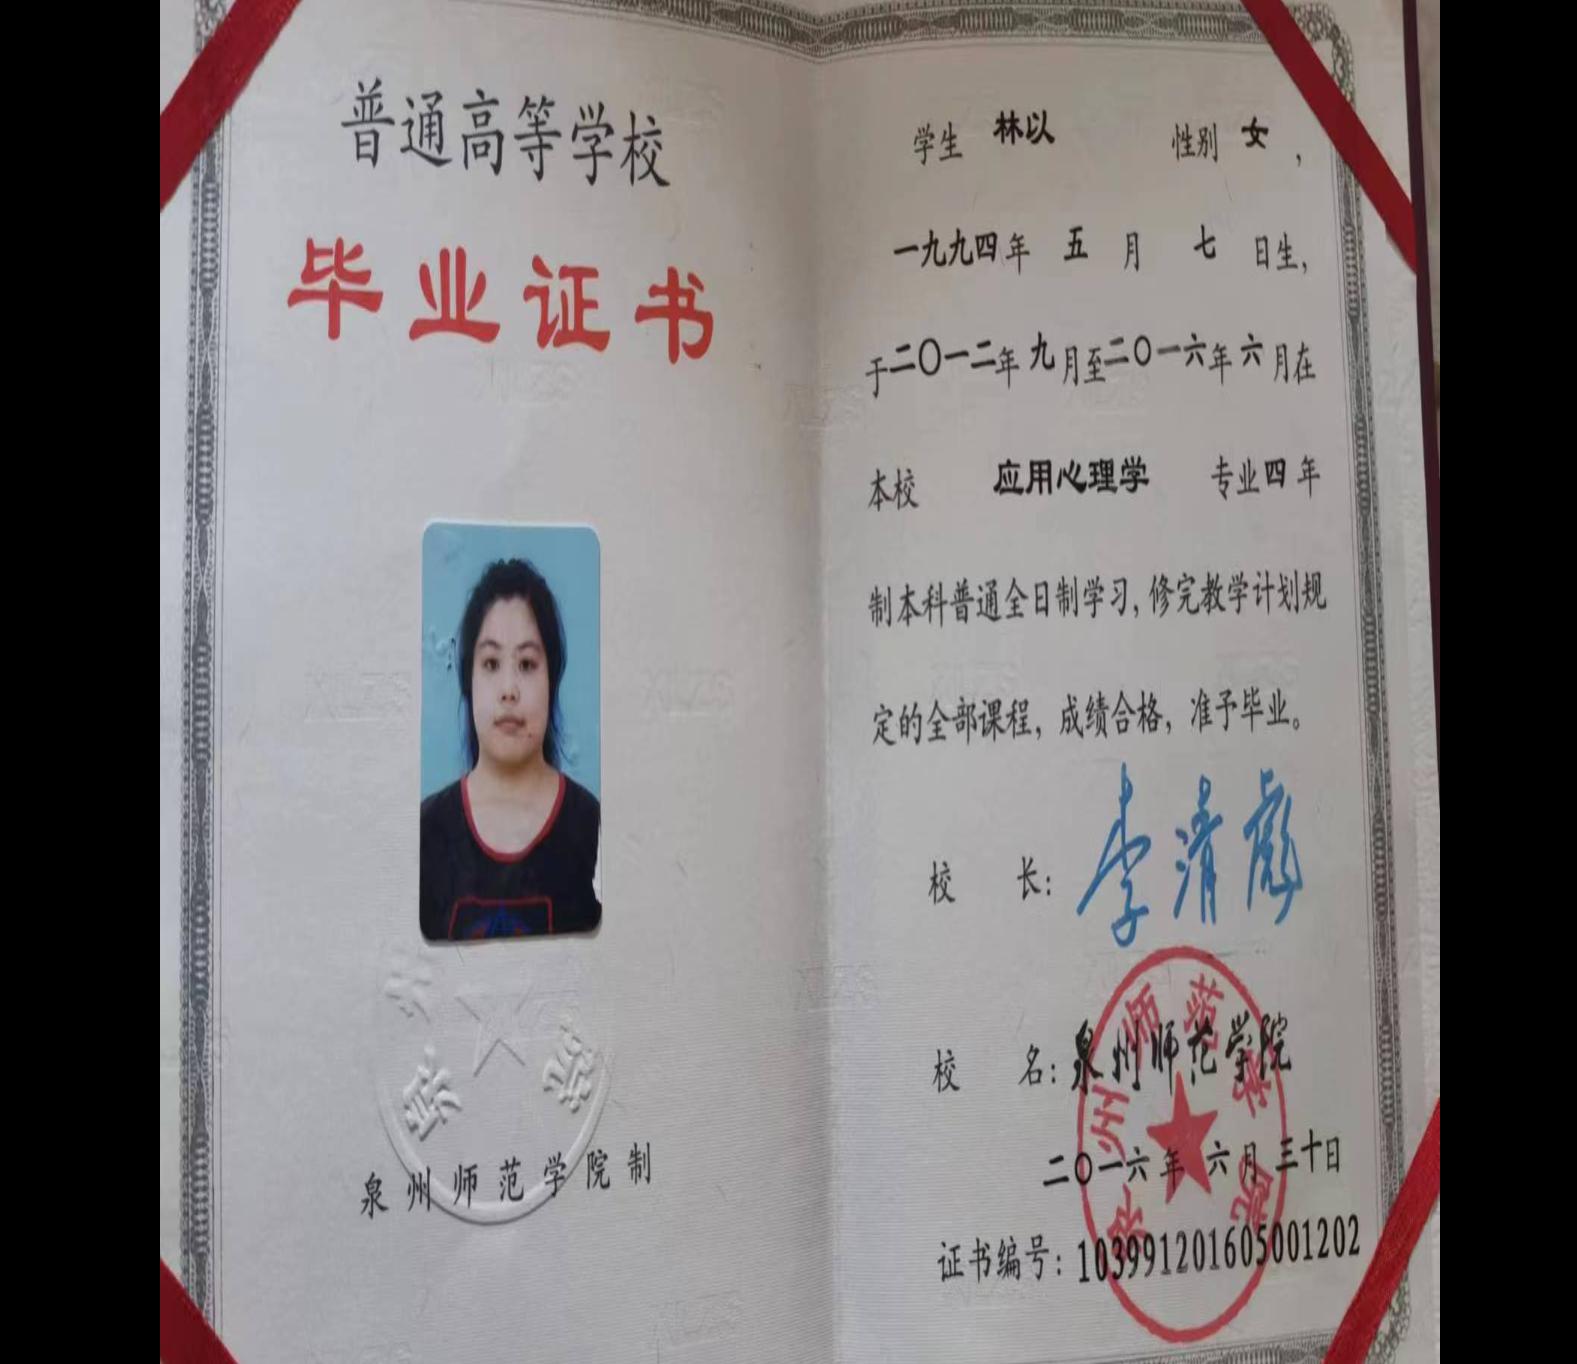 普通高等学校
毕业证书
泉州师范学院制
学生 林以 性别 女,
一九九四年 五 月 七 日生,
于二〇一二年 九 月至二〇一六年 六 月在
本校 应用心理学 专业四 年
制本科普通全日制学习,修完教学计划规
定的全部课程,成绩合格,准予毕业。
校 长: 李清彪
校 名: 泉州师范学院
泉州师范学院
二〇一六 年 六 月 三十日
证书编号: 103991201605001202